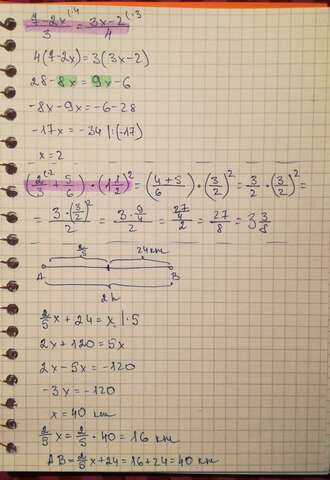 (7-2x)/3 ·4 = (3x-2)/4 ·3
4(7-2x)=3(3x-2)
28-8x=9x-6
-8x-9x=-6-28
-17x=-34 |:(-17)
x=2
(2/3 ·2 + 5/6)·(1 1/2)² = ((4+5)/6)·(3/2)² = 3/2·(3/2)² =
= (3·(3/2)²)/2 = (3·9/4)/2 = (27/4)/2 = 27/8 = 3 3/8
2/5 24km
A B
2h
2/5x+24=x |·5
2x+120=5x
2x-5x=-120
-3x=-120
x=40 km
2/5x=2/5·40=16 km
AB=2/5x+24=16+24=40 km